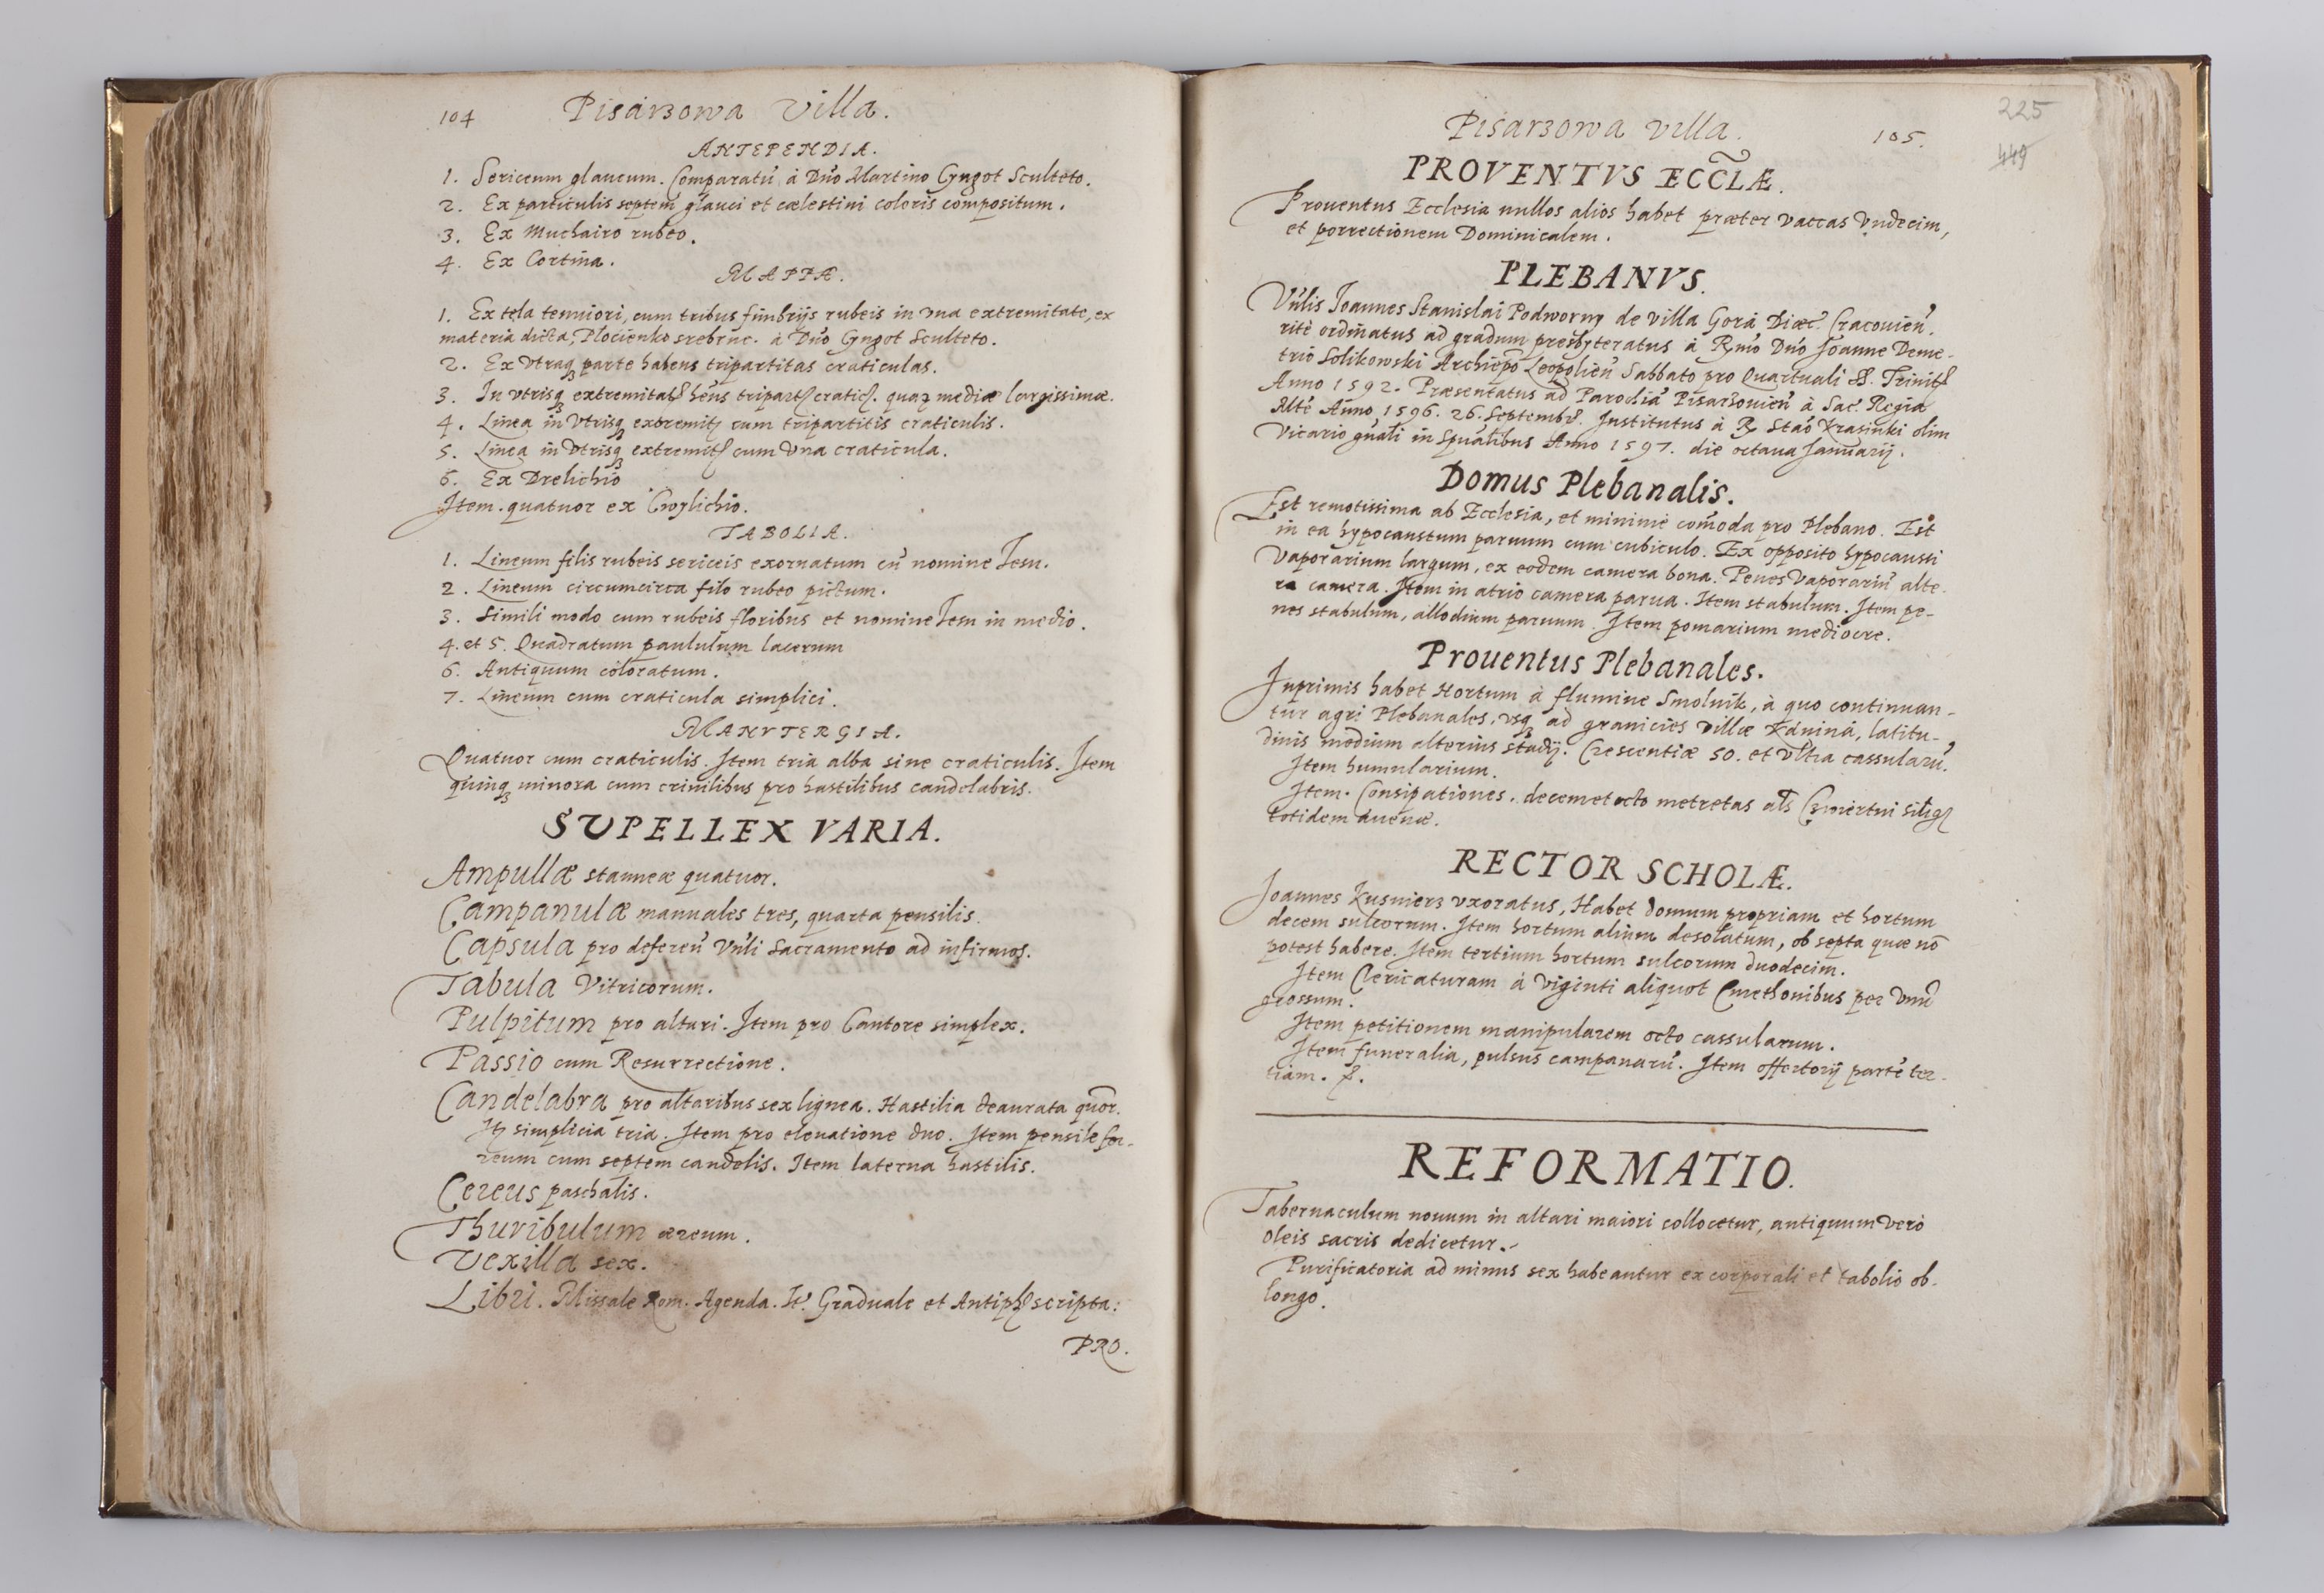 104 Pisarzowa Villa.
ANTEPENDIA.
1. Sericeum glaucum. Comparatū à Dño Martino Gyzgot Sculteto.
2. Ex particulis septem glauci et cælestini coloris compositum.
3. Ex Muchairo rubeo.
4. Ex Cortina.
MAPPÆ.
1. Ex tela tenuiori, cum tribus fimbrijs rubeis in una extremitate, ex
materia dicta, Plocienko srebrne. à Dño Gyzgot Sculteto.
2. Ex vtraq parte habens tripartitas craticulas.
3. In vtrisq extremitat. hēns tripart. cratic. quaꝝ mediæ largissimæ.
4. Linea in vtrisq extremit. cum tripartitis craticulis.
5. Linea in vtrisq extremit. cum vna craticula.
6. Ex Drelichio
Item. quatuor ex Cwylichio.
TABOLIA.
1. Lineum filis rubeis sericeis exornatum cū nomine Iesu.
2. Lineum circumcirca filo rubeo pictum.
3. Simili modo cum rubeis floribus et nomine Iesu in medio.
4. et 5. Quadratum paululum lacerum
6. Antiquum coloratum.
7. Lineum cum craticula simplici.
MANVTERGIA.
Quatuor cum craticulis. Item tria alba sine craticulis. Item
quinq minora cum crinilibus pro hastilibus candelabris.
SUPELLEX VARIA.
Ampullæ stanneæ quatuor.
Campanulæ manuales tres, quarta pensilis.
Capsula pro deferen̄ Vñli Sacramento ad infirmos.
Tabula Vitricorum.
Pulpitum pro altari. Item pro Cantore simplex.
Passio cum Resurrectione.
Candelabra pro altaribus sex lignea. Hastilia deaurata quōr.
It. simplicia tria. Item pro eleuatione duo. Item pensile fer-
reum cum septem candelis. Item laterna hastilis.
Cereus paschalis.
Thuribulum æreum.
Vexilla sex.
Libri. Missale Rom. Agenda. It. Graduale et Antiph. scripta:
PRO.
225
449
Pisarzowa villa. 105.
PROVENTVS ECCLÆ.
Prouentus Ecclesia nullos alios habet præter vaccas vndecim,
et porrectionem Dominicalem.
PLEBANVS.
Vñlis Ioannes Stanislai Podworny de villa Gorá Diœc. Cracouien̄.
ritè ordinatus ad gradum presbyteratus à Rmo Dño Ioanne Deme-
trio Solikowski Archiepō Leopolien̄ Sabbato pro Quartuali SS. Trinit.
Anno 1592. Præsentatus ad Parochiā Pisarzouien̄ à Sac. Regia
Mtē Anno 1596. 26. Septembr. Institutus à R. Stāo Krasinki olim
Vicario gñali in Spūalibus Anno 1597. die octaua Ianuarij.
Domus Plebanalis.
Est remotissima ab Ecclesia, et minimè comoda pro Plebano. Est
in ea hypocaustum paruum cum cubiculo. Ex opposito hypocausti
Vaporarium largum, ex eodem camera bona. Penes Vaporariū alte-
ra camera. Item in atrio camera parua. Item stabulum. Item pe-
nes stabulum, allodium paruum. Item pomarium mediocre.
Prouentus Plebanales.
Inprimis habet Hortum à flumine Smolnik, à quo continuan-
tur agri Plebanales, vsq ad granicies villæ Kániná, latitu-
dinis medium alterius stadij. Crescentiæ 50. et vltra cassularū.
Item humularium.
Item. Consipationes. decem et octo metretas als Cwiertni silig.
totidem auenæ.
RECTOR SCHOLÆ.
Ioannes Kusnierz vxoratus, Habet domum propriam et hortum
decem sulcorum. Item hortum alium desolatum, ob septa quæ nō
potest habere. Item tertium hortum sulcorum duodecim.
Item Clericaturam à viginti aliquot Cmethonibus per vnū
grossum.
Item petitionem manipularem octo cassularum.
Item funeralia, pulsus campanarū. Item offertorij partē ter-
tiam.
REFORMATIO.
Tabernaculum nouum in altari maiori collocetur, antiquum verò
oleis sacris dedicetur.
Purificatoria ad minus sex habeantur ex corporali et tabolio ob-
longo.